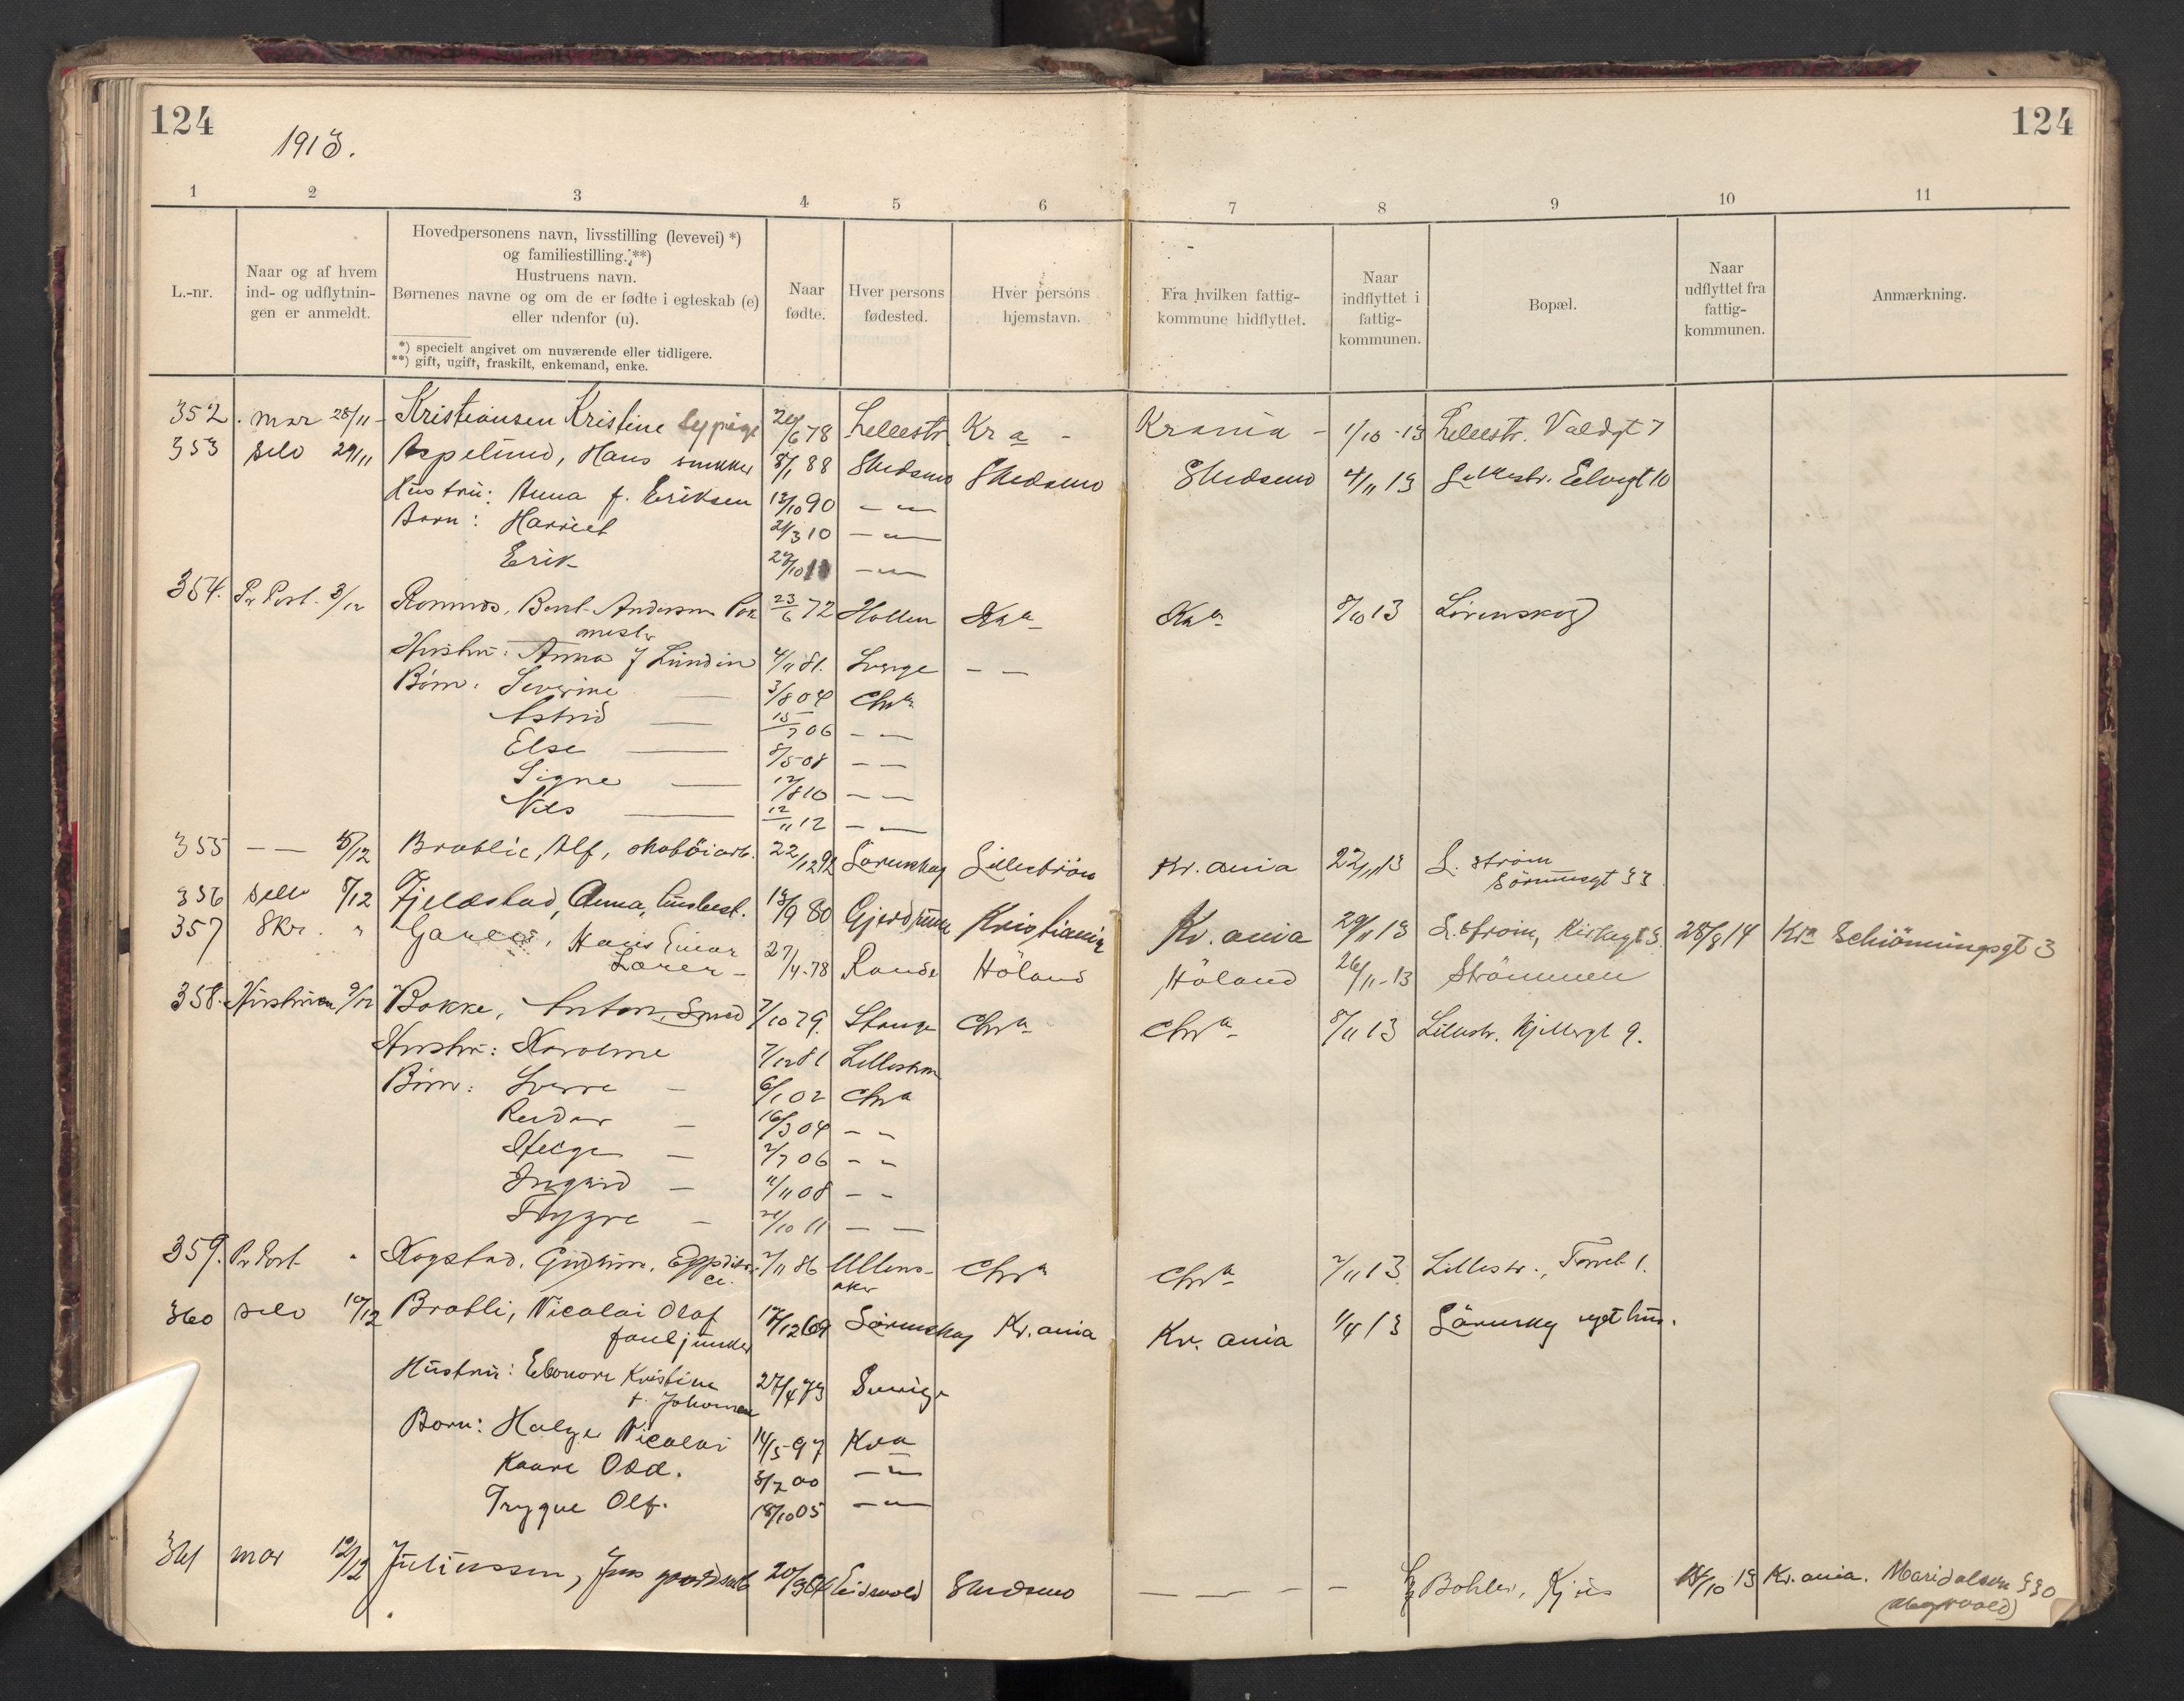 124
124
1913.
1 2 3 4 5 6 7 8 9 10 11
L.-nr.
Naar og af hvem
ind- og udflytnin-
gen er anmeldt.
Hovedpersonens navn, livsstilling (levevei) *)
og familiestilling. **)
Hustruens navn.
Børnenes navne og om de er fødte i egteskab (e)
eller udenfor (u).
*) specielt angivet om nuværende eller tidligere.
**) gift, ugift, fraskilt, enkemand, enke.
Naar
fødte.
Hver persons
fødested.
Hver persons
hjemstavn.
Fra hvilken fattig-
kommune hidflyttet.
Naar
indflyttet i
fattig-
kommunen.
Bopæl.
Naar
udflyttet fra
fattig-
kommunen.
Anmærkning.
352. mor 28/11 - Kristiansen Kristine 78 Lellestr Kra - Krania - 1/10-13 Lellestr. Valdgt 7
353 selv 29/11 Aspelund, Hans snekker 8/1 88 Skedsmo Skedsmo Skedsmo 4/11 13 Lellestr. Elvegt 10
Hustru: Anna f. Eriksen 13/10 90 — " —
Born: Harriet 21/3 10 — " —
Erik — " —
354. Pr Post. 3/12 Romnæs, Bernt Andersen 23/6 72 Kra Kra 8/10 13 Lørenskog
mester
Hustru: Anna f Lundin 4/11 81. Sverge — —
Børn: Severine — 3/8 04 Chra
Astrid — 15/7 06 — —
Else — 8/5 08 — —
Signe — 17/8 10 — —
Nils — 12/11 12 — —
355 — — 5/12 Brablie, Alf, skotöiarb. 22/12 92 Lørenskog Lillestrøm Kr.ania 22/11 13 L. strøm
33
356 selv 8/12 Fjeldstad, Anna, 13/9 80 Gjerdrum Kristiania Kr.ania 29/11 13 L.strøm, Kirkegt 3. 28/8 14 Kra Schiönningsgt 3
357 Skr. " Hans Einar
27/4-78 Höland Höland 26/11-13 Strömmen
358. Hustruen 9/12 Bakke, Anton, Smed 7/10 79. Stange Chra Chra 8/11 13 Lillestr. Kjellergt 9.
Hustru: Karoline 7/12 81 Lillestrøm
Børn: Sverre — 6/1 02 Chra
Reidar — 16/3 04 — —
Helge — 2/7 06 — —
Ingrid — 11/11 08 — —
Trygve — 11 — —
359. Pr Post " Kogstad, Gudrun, 2/11 86 Ullens- Chra Chra 2/11 13 Lillestr., Torvet 1.
aker
360 selv 10/12 Brobli, Nicolai Olaf 17/12 69 Lørenskog Kr.ania Kr.ania 1/4 13 Lørenskg eget hus.
Hustru: Eleonore Kristine 27/4 73 Sverige
f. Johansen
Born: Holger Nicolai 14/5 97 Kra
Kaare Odd. 3/7 00 — " —
Trygve Olf. 18/10 05 — " —
361 mor 12/12 Juliussen, Jens Eidsvold Skedsmo — — — — Bøhler, 13 Kr.ania. Maridalsvn